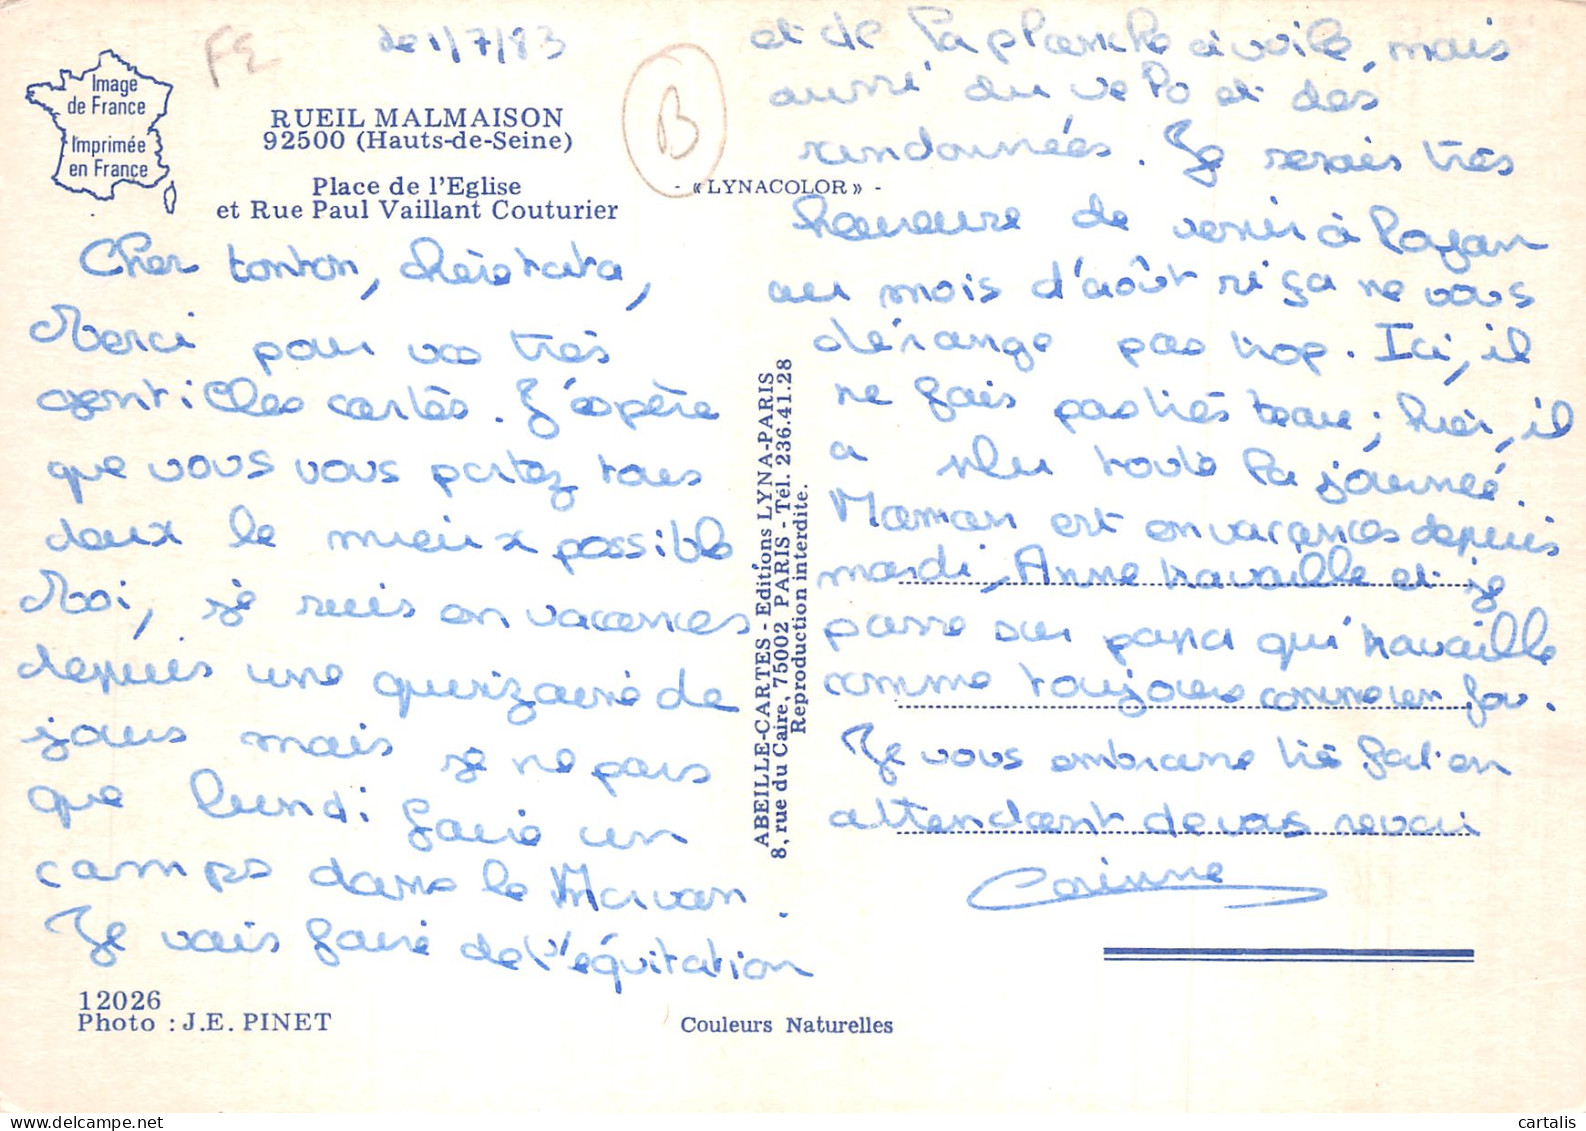 Image
de France
Imprimée
en France
FE
de 1/7/83
RUEIL MALMAISON
92500 (Hauts-de-Seine)
Place de l'Eglise
et Rue Paul Vaillant Couturier
B
- « LYNACOLOR » -
Cher tonton, chère tata,
Merci pour vos très
gentilles cartes. J'espère
que vous vous portez tous
deux le mieux possible
Moi, je suis en vacances
depuis une quinzaine de
jours mais je ne pars
que lundi faire un
camps dans le Morvan.
Je vais faire de l'équitation
et de la planche à voile, mais
aussi du vélo et des
randonnées. Je serais très
heureuse de venir à
au mois d'août si ça ne vous
dérange pas trop. Ici, il
ne fais pas très beau ; hier, il
a plu toute la journée.
Maman est en vacances depuis
mardi, Anne travaille et je
passe sur papa qui travaille
comme toujours comme un fou.
Je vous embrasse très fort en
attendant de vous revoir
Corinne
ABEILLE-CARTES - Editions LYNA-PARIS
8, rue du Caire, 75002 PARIS - Tél. 236.41.28
Reproduction interdite.
12026
Photo : J.E. PINET
Couleurs Naturelles
delcampe.net
cartalis